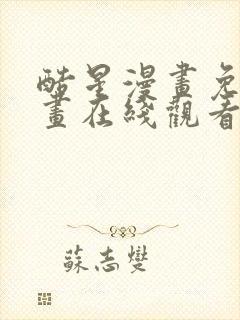 酷星漫畫免
畫在綫觀看
蘇志燮